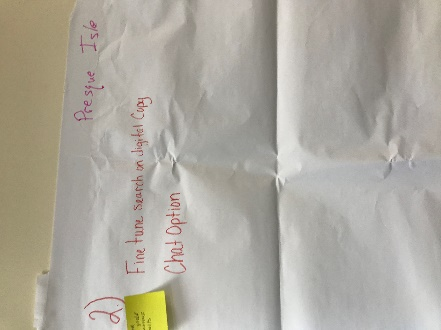 Presque Isle
2)
Fine tune search on digital Copy
Chat Option